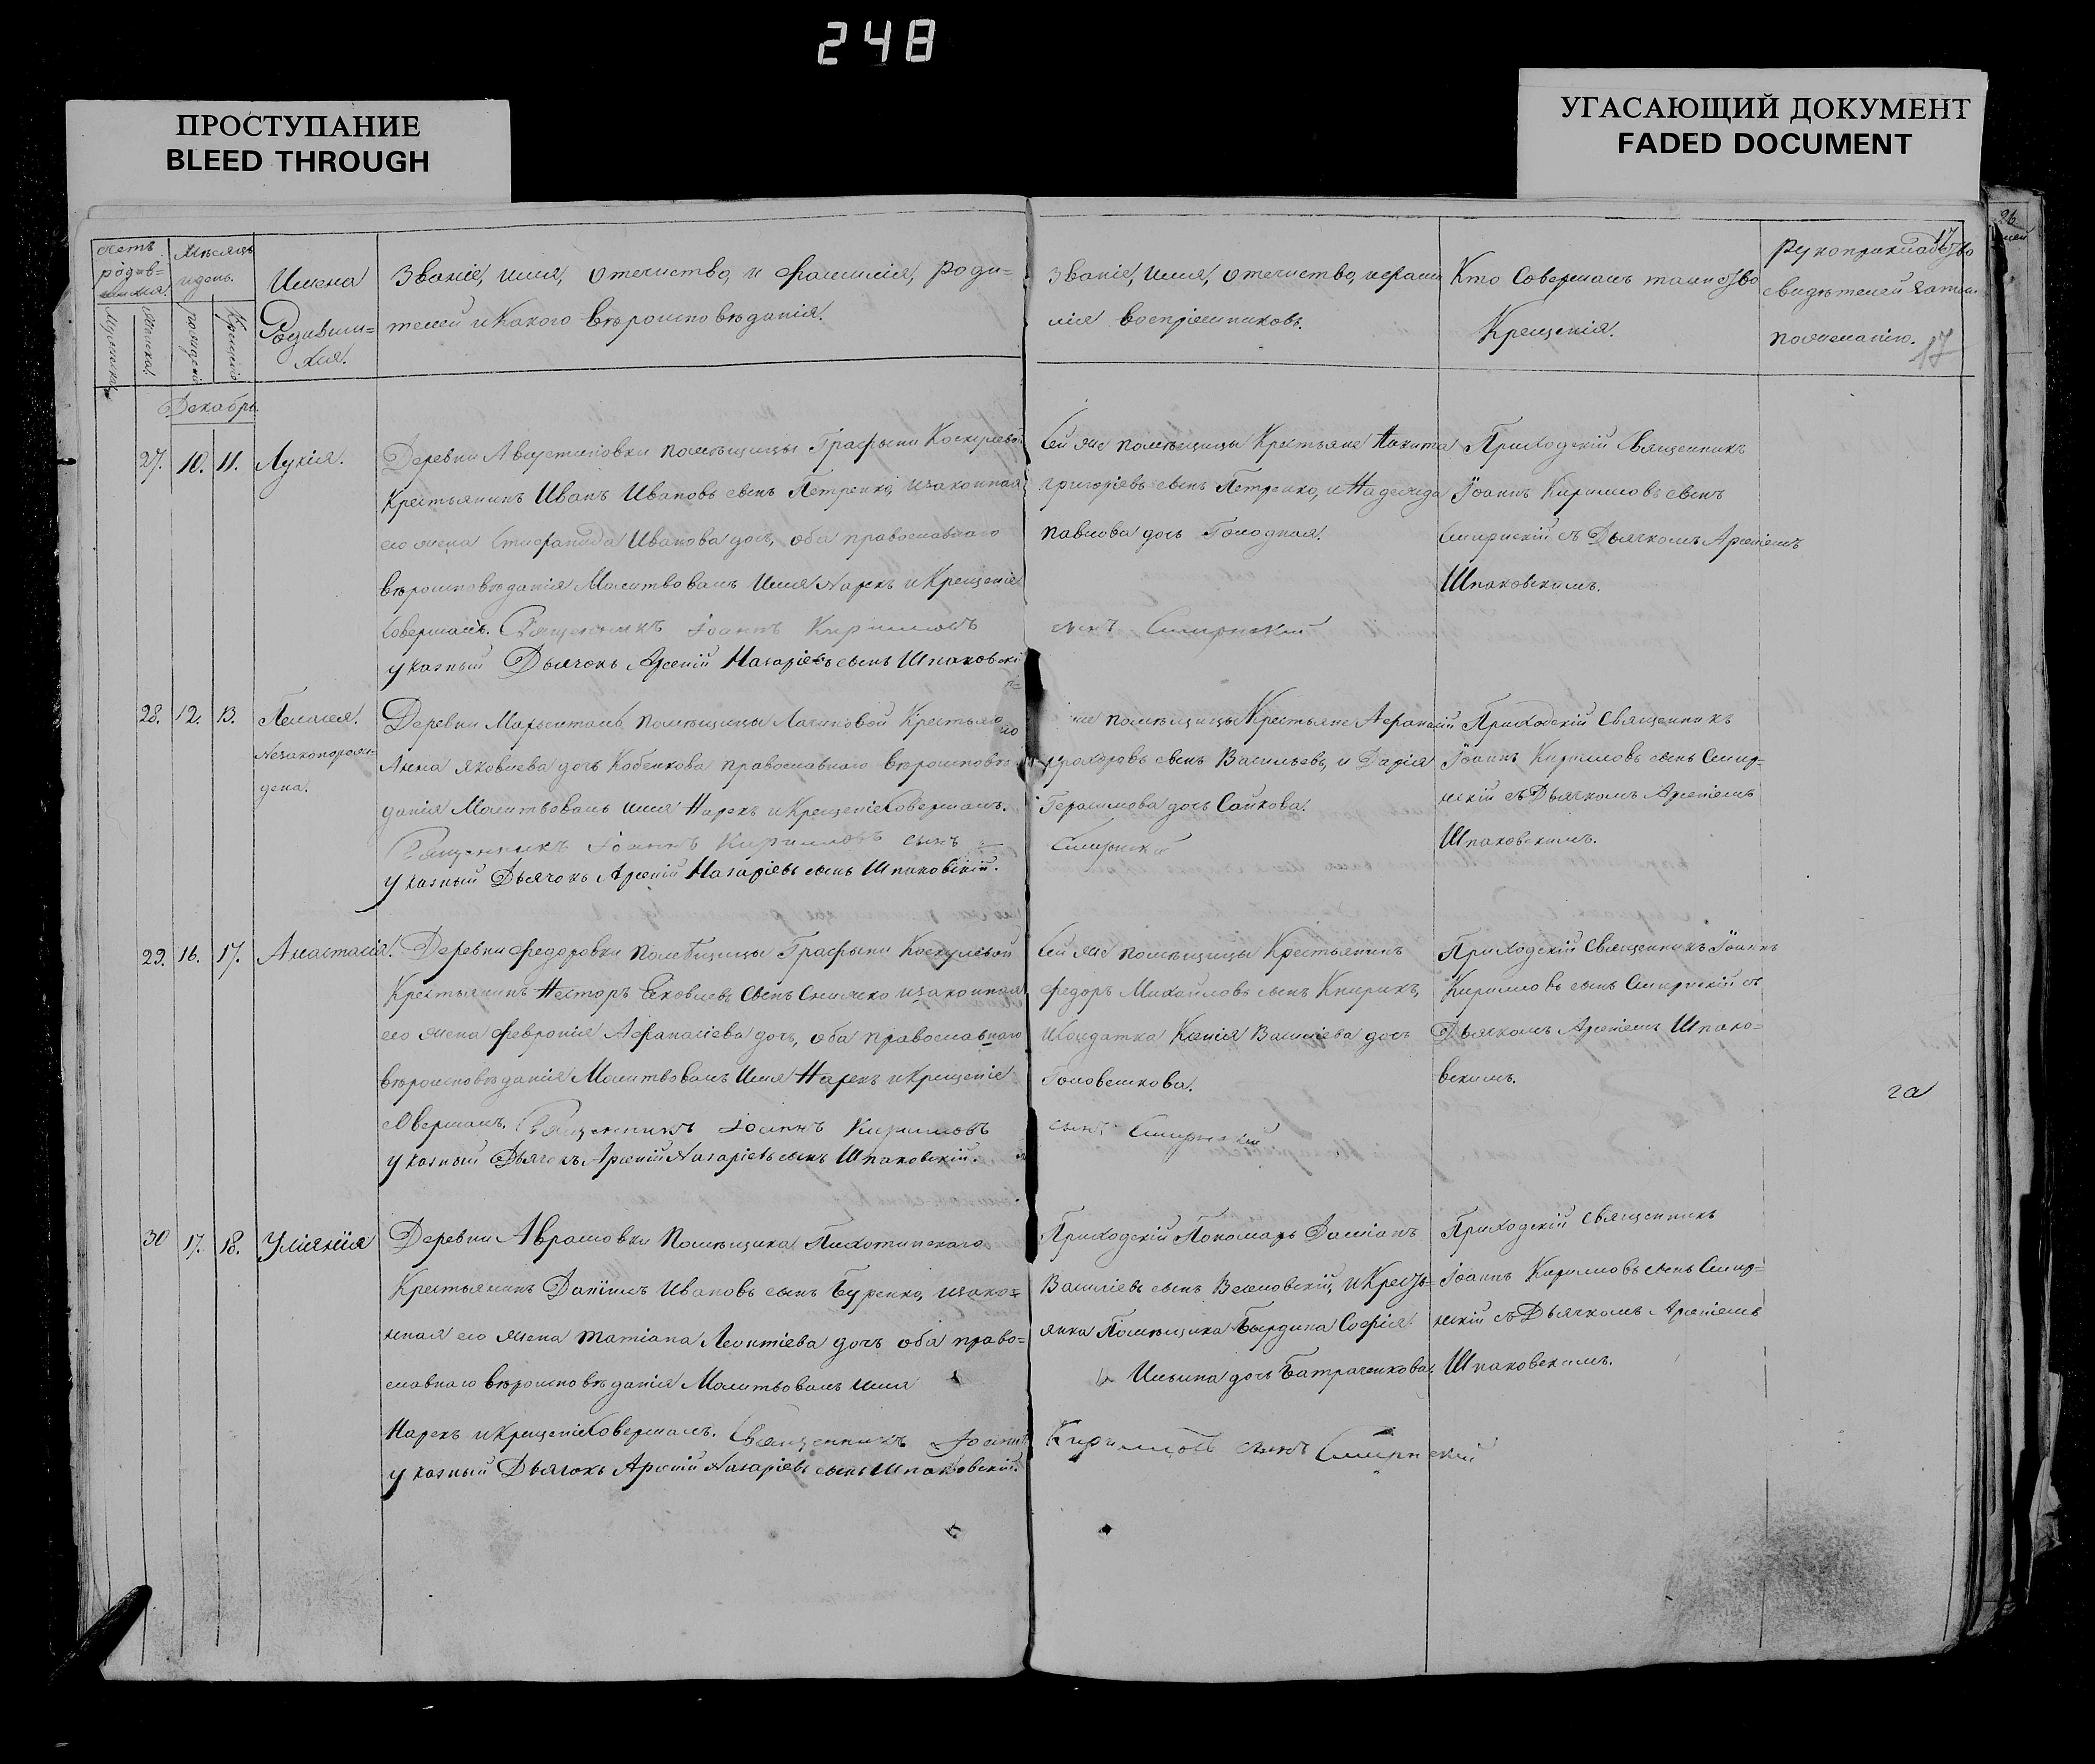 248
ПРОСТУПАНИЕ
BLEED THROUGH
УГАСАЮЩИЙ ДОКУМЕНТ
FADED DOCUMENT
26
17
Счетъ родив=шихся.
Мужеска
Женска.
Мѣсяцъ и день.
рожденія
Крещенія
Имена
Родивши=
хся.
Званіе, имя, отечиство, и фамилія, роди=
телей и какого вѣроисповѣданія.
Званіе, имя, отечиство, и фами
лія воспріемниковъ.
Кто Совершалъ таинство
Крещенія.
Рукоприкладство
свидѣтелей
пожеланію.
17
Декабрь.
27. 10. 11. Лукія.
Деревни Августиновки помѣщицы Графини
Крестьянинъ Иванъ Ивановъ сынъ Петренко, изаконная
его жена Стефанида Иванова доч, оба православнаго
вѣроисповѣданія Молитвовалъ Имя Нарекъ и Крещеніе
Совершалъ. Священникъ Іоаннъ Кирилловъ
сынъ Смирнскій
указный Дьячокъ Арсеній Назаріевъ сынъ Шпаковскій
Сей же помѣщицы Крестьяне Никита
григоріевъ сынъ Петренко, и Надежда
павлова дочь Голодная.
Приходскій Священникъ
Іоаннъ Кирилловъ сынъ
Смирнскій съ Дьячкомъ Арсеніемъ
Шпаковскимъ.
28. 12. 13. Пелагея.
Незаконорож=
дена.
Деревни помѣщицы Крестьян
Анна Яковлева доч Кобенкова православнаго вѣроисповѣ
данія Молитвовалъ имя Нарекъ и Крещеніе Совершалъ.
Священникъ Іоаннъ Кирилловъ сынъ
Смирнскій
указный Дьячокъ Арсеній Назаріевъ сынъ Шпаковскій.
же помѣщицы Крестьяне Афанасій
прохоровъ сынъ Васильевъ, и Дарія
Герасимова дочь Сайкова.
Приходскій Священникъ
Іоаннъ Кирилловъ сынъ Смир=
нскій съ Дьячкомъ Арсеніемъ
Шпаковскимъ.
29. 16. 17. Анастасія.
Деревни Федоровки помѣщицы Графини
Крестьянинъ Несторъ Яковлевъ Сынъ изаконная
его жена Февронія Афанасіева доч, оба православнаго
вѣроисповѣданія Молитвовалъ Имя Нарекъ и Крещеніе
Совершалъ. Священникъ Іоаннъ Кирилловъ
сынъ Смирнскій
указный Дьячокъ Арсеній Назаріевъ сынъ Шпаковскій.
Сей же помѣщицы Крестьянинъ
Федоръ Михайловъ сынъ Книрикъ,
и Солдатка Ксенія Василіева дочь
Головешкова.
Приходскій Священникъ Іоаннъ
Кирилловъ сынъ Смирнскій съ
Дьячкомъ Арсеніемъ Шпако=
вскимъ.
га
30 17. 18. Уліянія
Деревни Аврамовки Помѣщика Пихотинскаго
Крестьянинъ Даніилъ Ивановъ сынъ Буренко, изако=
нная его жена Татіана Леонтіева дочь оба право=
славнаго вѣроисповѣданія Молитвовалъ имя
Нарекъ и Крещеніе Совершалъ. Священникъ Іоаннъ
Кирилловъ сынъ Смирнскій
указный Дьячокъ Арсеній Назаріевъ сынъ Шпаковскій.
Приходскій Пономарь Даміанъ
Василіевъ сынъ Веселовскій, и Кресть=
янка Помѣщика Бырдина Софія
Ильина дочь Батраченкова.
Приходскій Священникъ
Іоаннъ Кирилловъ сынъ Смир=
нскій съ Дьячкомъ Арсеніемъ
Шпаковскимъ.